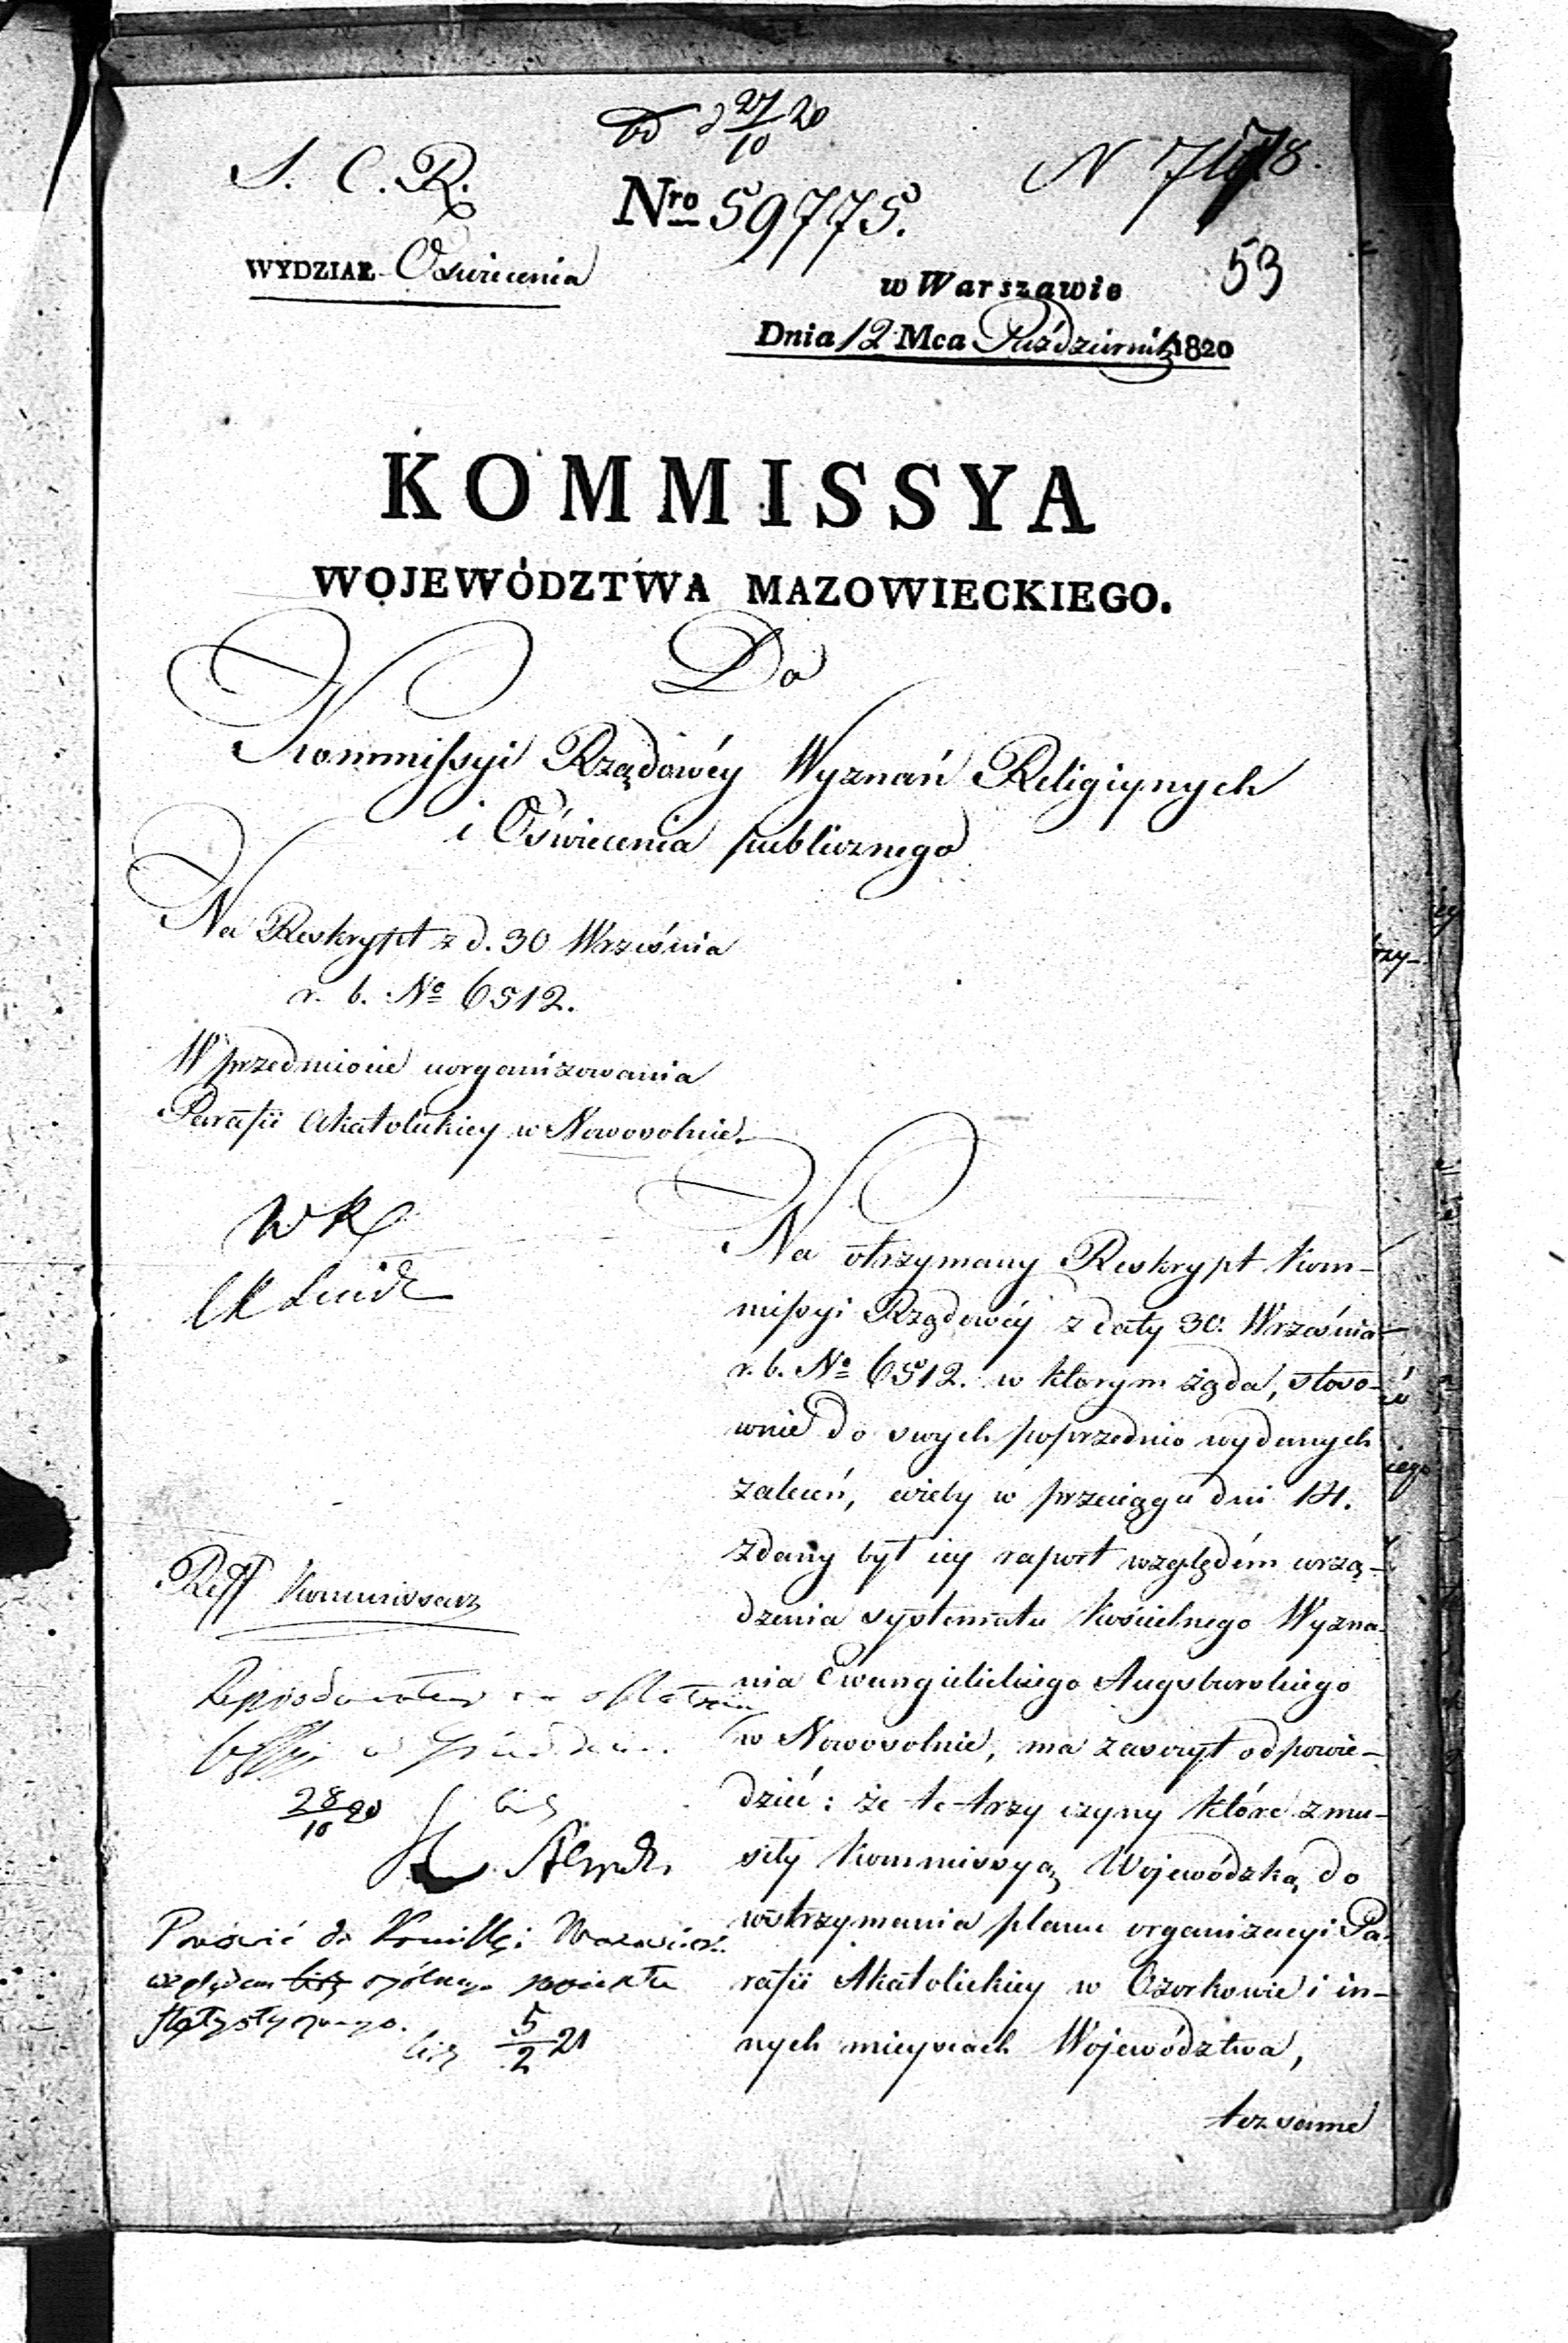 od d 27/10 20
S. C. R.
N 7178.
Nro 59775.
WYDZIAŁ Oswiecenia
53
w Warszawie
Dnia 12 Mca Październik 1820
KOMMISSYA
WOJEWÓDZTWA MAZOWIECKIEGO.
Do
Kommissyi Rządowéy Wyznań Religiynych
i Oświecenia publicznego
Na Reskrypt z d. 30 Września
r. b. No 6512.
W przedmiocie uorganizowania
Parafii Akatolickiey w Nowosolnie.
WR
Na otrzymany Reskrypt Kom-
missyi Rządowéy z daty 30. Września
r. b. No 6512. w ktorym żąda, stoso-
wnie do swych poprzednio wydanych
zaleceń, ażeby w przeciągu dni 14.
zdany był iey raport względem urzą-
dzenia systematu Kościelnego Wyzna-
nia Ewangielickiego Augsburskiego
w Nowosolnie, ma zaszczyt odpowie-
dzieć: że te trzy czyny które zmu-
siły Kommissyą Wojewódzką do
wstrzymania planu organizacyi Pa-
rafii Akatolickiey w Ozorkowie i in-
nych mieyscach Województwa,
tez same
Reff Kommissarz
28/10 20
Ponowić do Kommissyi Mazowiec.
względem ogólnego proiektu
statystycznego.
5/2 21